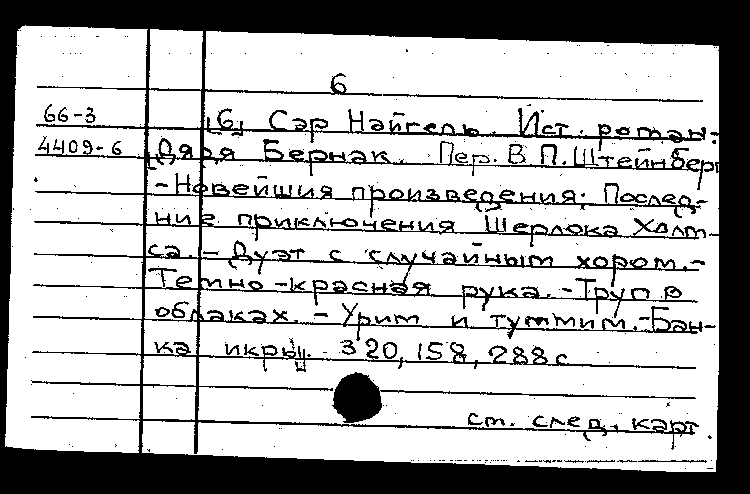 6
66-3 [6] Сэр Найгель. Ист. роман:
4409-6 Дядя Бернак. Пер. В.П. Штейнберг
-Новейшия произведения: Послед-
ние приключения Шерлока Холм-
са. - Дуэт с случайным хором.-
Темно-красная рука. -Труп в
облаках. - Урим и туммим.-Бан-
ка икры]. 320, 158, 288 с
ст. след. карт.